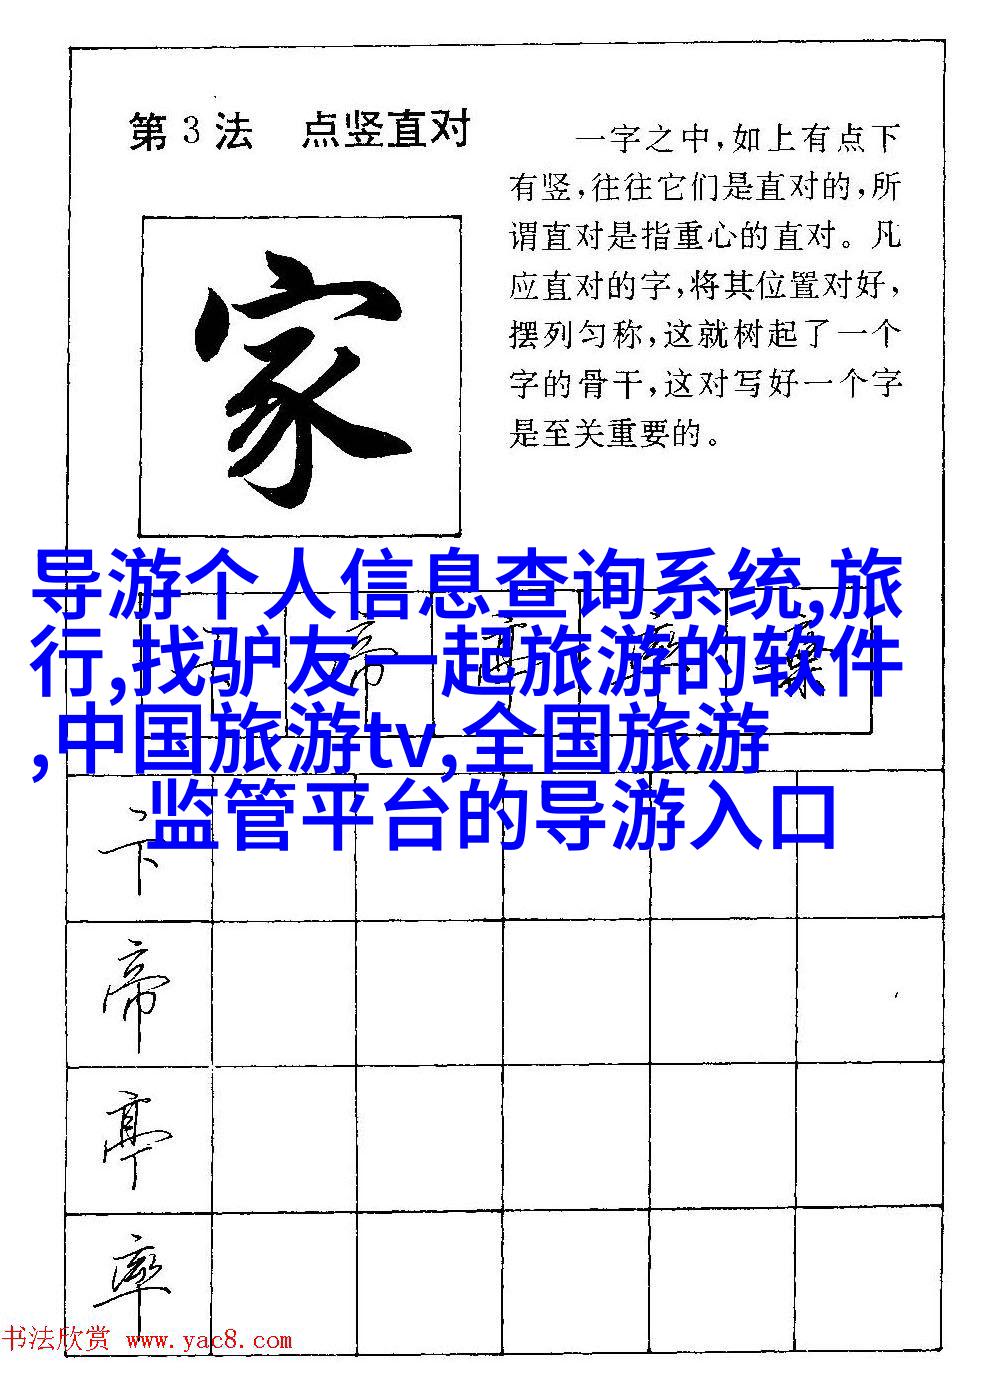 第3法 点竖直对
一字之中,如上有点下
有竖,往往它们是直对的,所
谓直对是指重心的直对。凡
应直对的字,将其位置对好,
摆列匀称,这就树起了一个
字的骨干,这对写好一个字
是至关重要的。
家
导游个人信息查询系统,旅
行,找驴友一起旅游的软件
,中国旅游tv,全国旅游
监管平台的导游入口
卞
帝
亭
率
书法欣赏 www.yac8.com